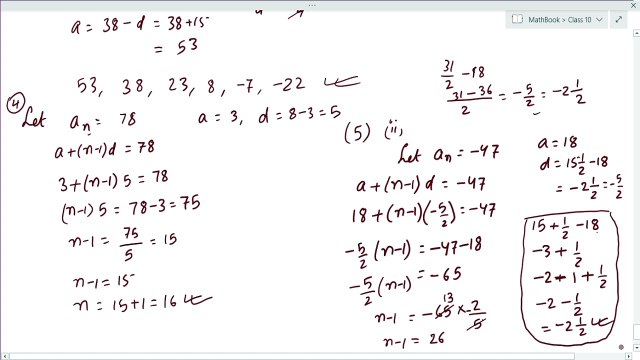 MathBook > Class 10
a = 38 - d = 38 + 15
= 53
53, 38, 23, 8, -7, -22
(4) Let a_n = 78 a = 3, d = 8 - 3 = 5
a + (n-1) d = 78
3 + (n-1) 5 = 78
(n-1) 5 = 78 - 3 = 75
n-1 = 75/5 = 15
n-1 = 15
n = 15 + 1 = 16
31/2 - 18
31-36/2 = -5/2 = -2 1/2
(5) (ii)
Let a_n = -47
a + (n-1) d = -47
18 + (n-1)(-5/2) = -47
-5/2 (n-1) = -47 - 18
-5/2 (n-1) = -65
n-1 = -65 13 × -2/5
n-1 = 26
a = 18
d = 15 1/2 - 18
= -2 1/2 = -5/2
15 + 1/2 - 18
-3 + 1/2
-2 - 1 + 1/2
-2 - 1/2
= -2 1/2